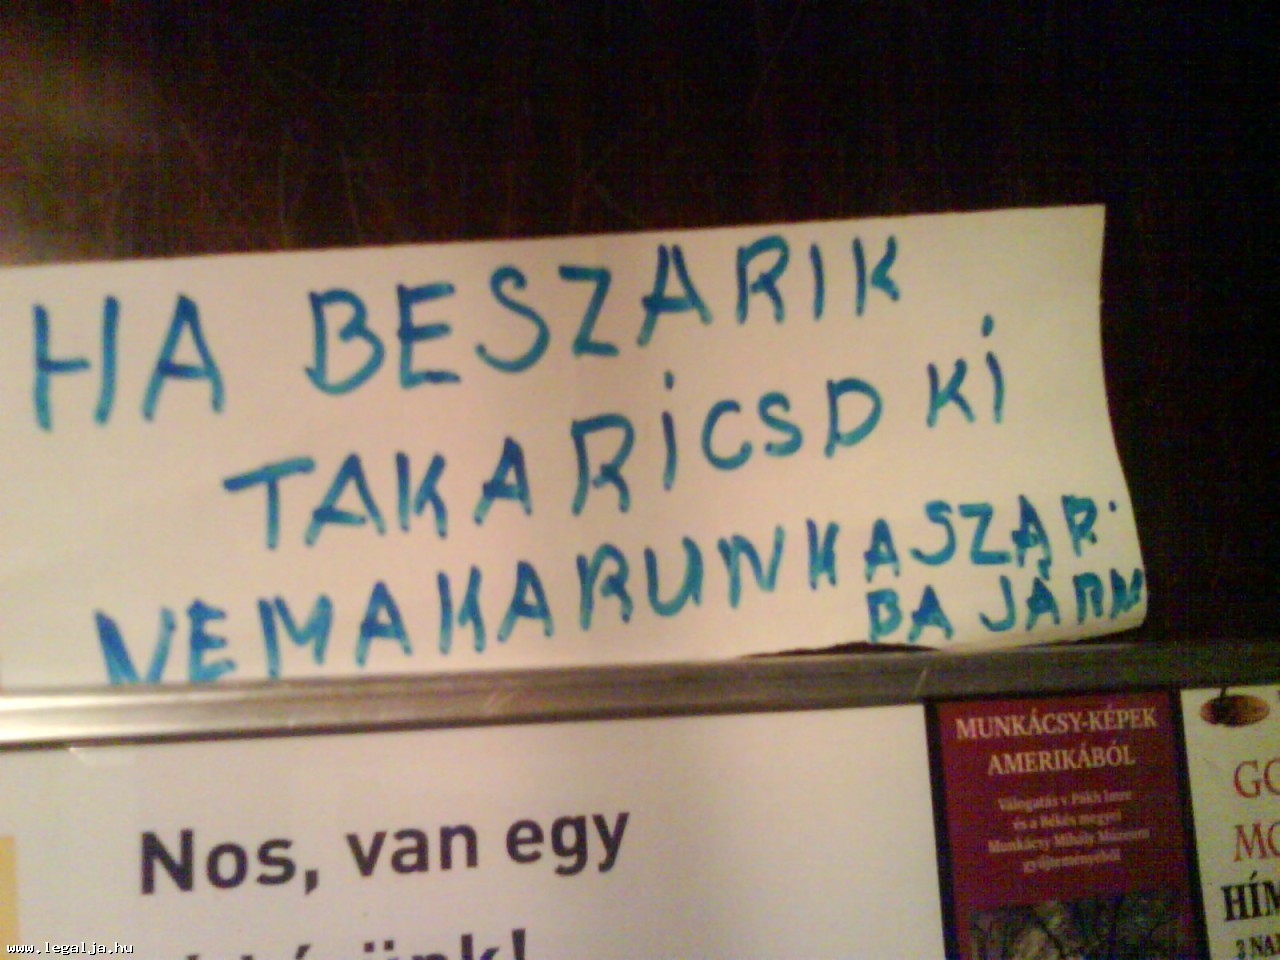 HA BESZARIK
TAKARİCSD Kİ
NEMAKARUNK A SZAR
BA JÁRNI
Nos, van egy
MUNKÁCSY-KÉPEK
AMERIKÁBÓL
Válogatás v. Pákh Imre
és a Békés megyei
Munkácsy Mihály Múzeum
gyűjteményéből
GO
MO
HÍM
www.legalja.hu